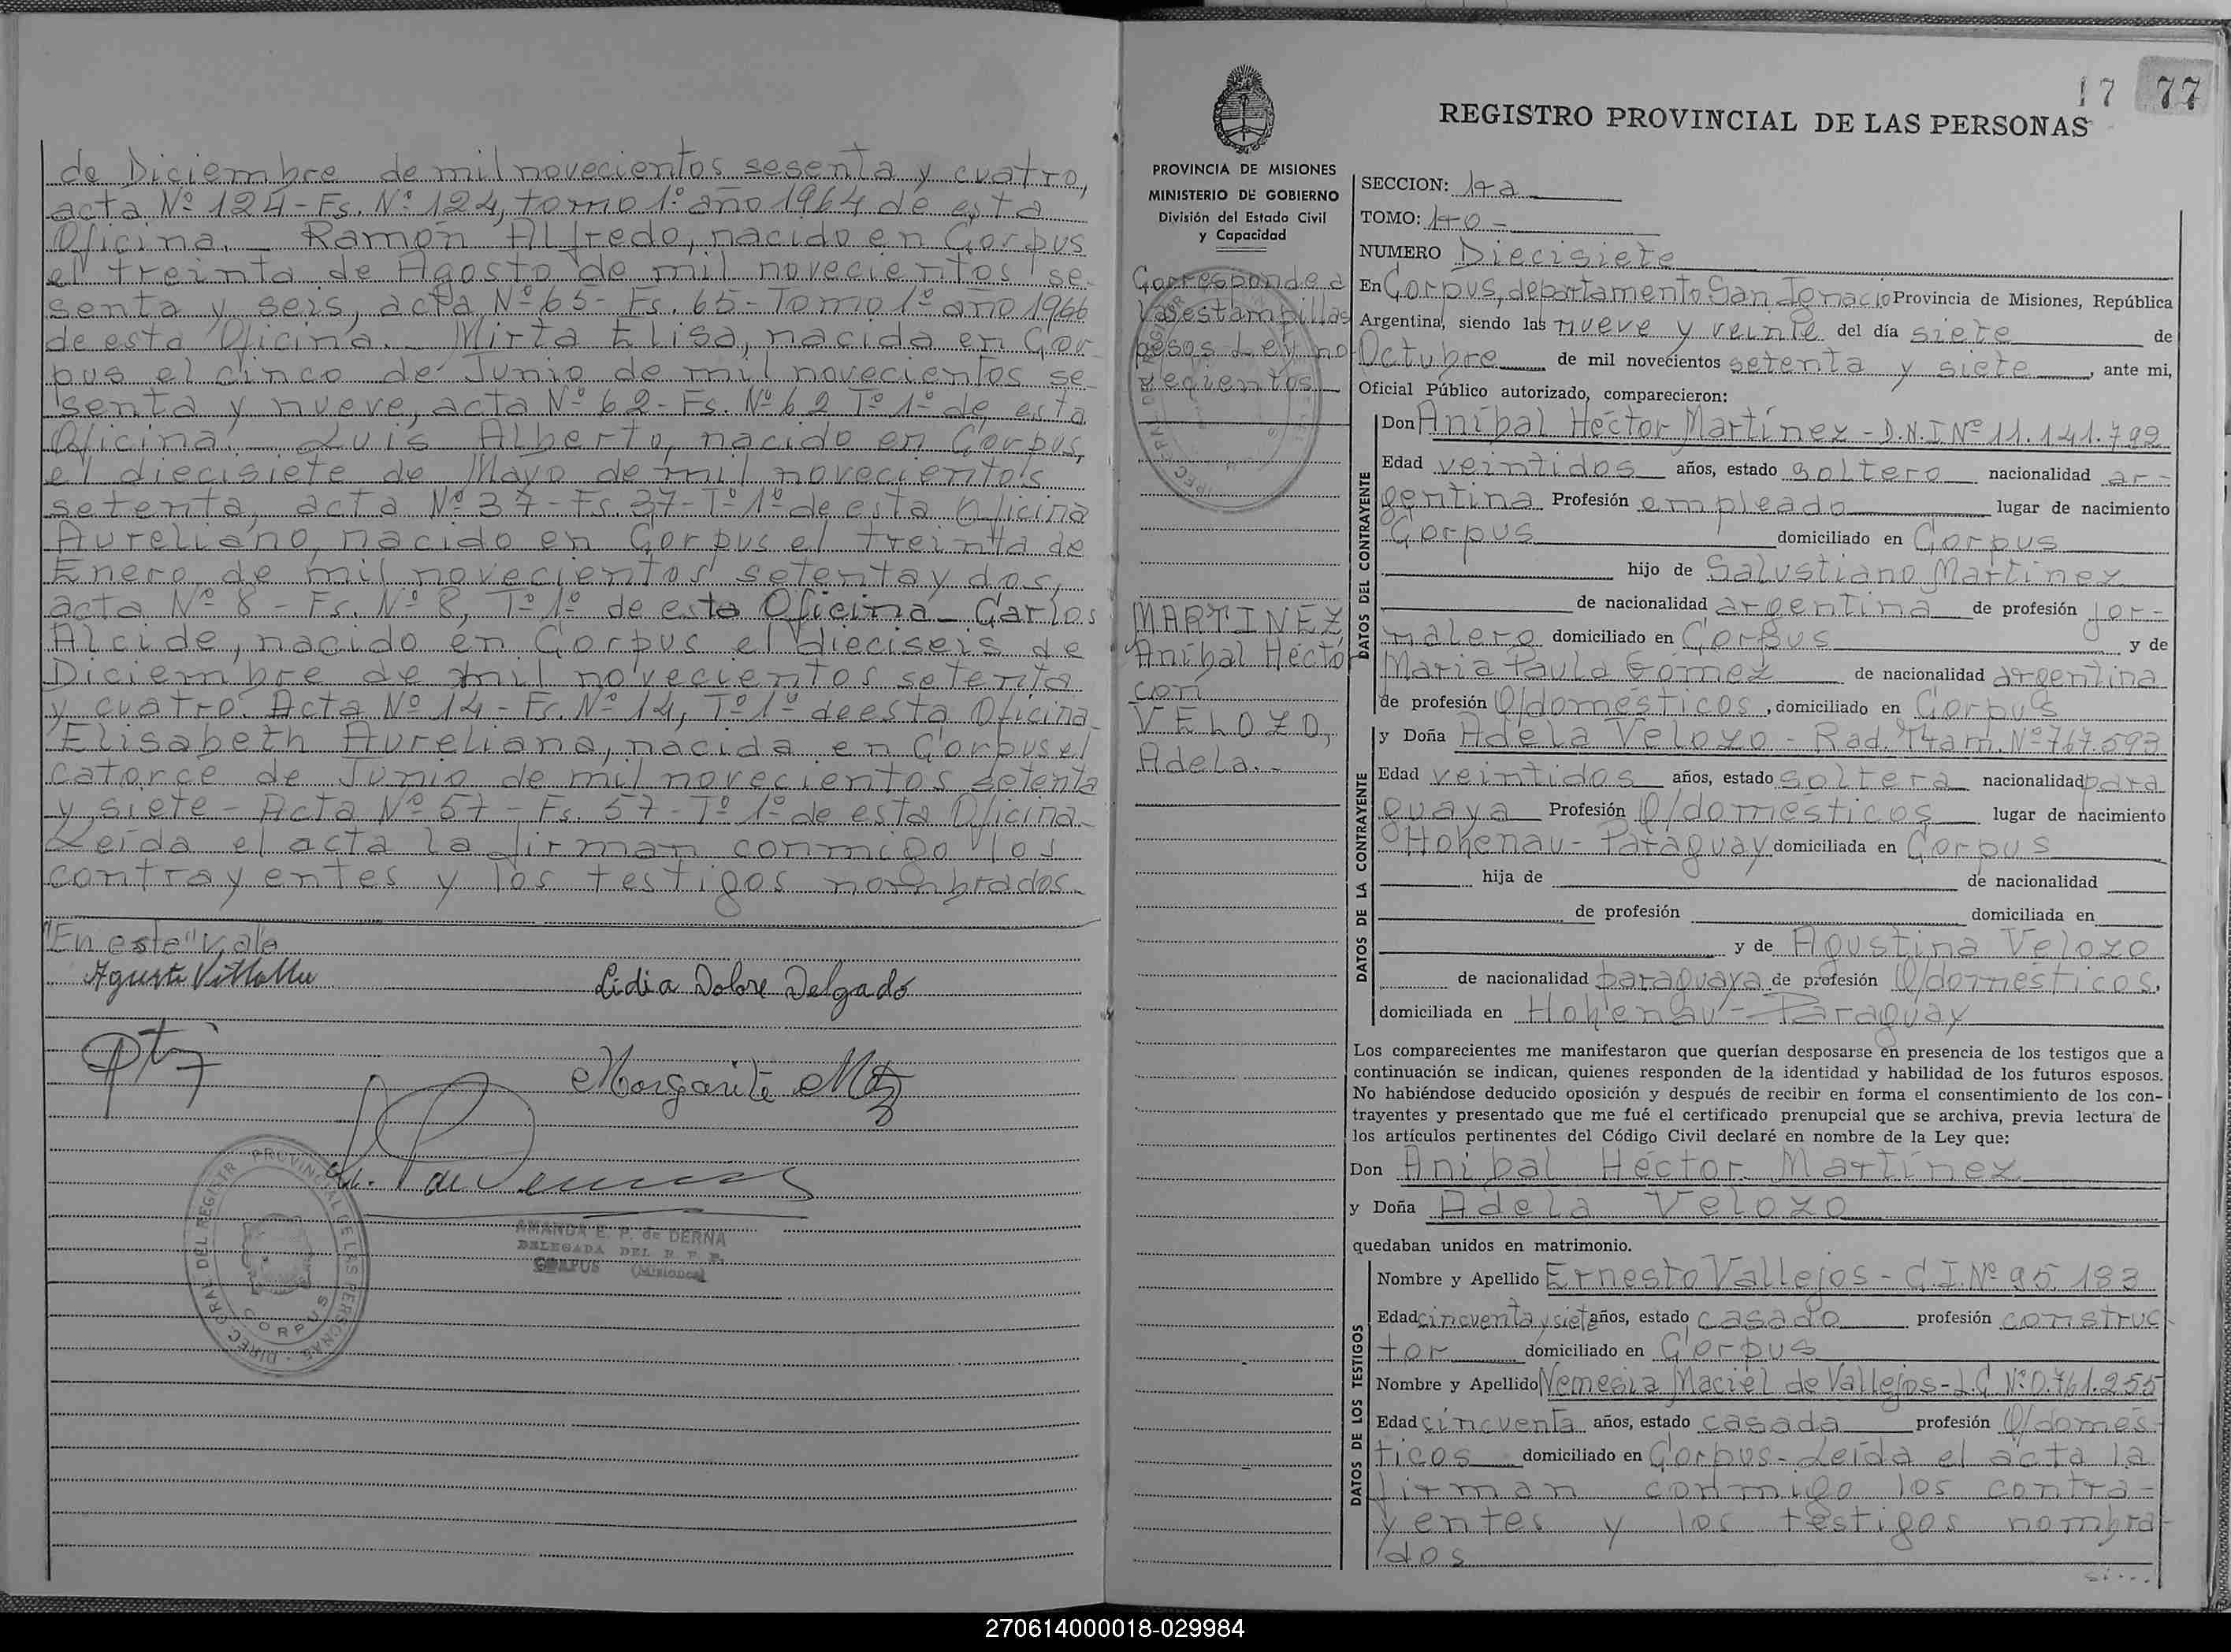 de Diciembre de mil novecientos sesenta y cuatro,
acta Nº 124 - Fs. Nº 124, tomo 1º año 1964 de esta
Oficina. - Ramón Alfredo, nacido en Corpus
el treinta de Agosto de mil novecientos se-
senta y seis, acta Nº 65 - Fs. 65 - Tomo 1º año 1966
de esta Oficina. - Mirta Elisa, nacida en Cor
pus el cinco de Junio de mil novecientos se-
senta y nueve, acta Nº 62 - Fs. Nº 62 Tº 1º de esta
Oficina. - Luis Alberto, nacido en Corpus,
el diecisiete de Mayo de mil novecientos
setenta, acta Nº 37 - Fs. 37 - Tº 1º de esta Oficina
Aureliano, nacido en Corpus el treinta de
Enero de mil novecientos setenta y dos,
acta Nº 8 - Fs. Nº 8, Tº 1º de esta Oficina - Carlos
Alcide, nacido en Corpus el dieciseis de
Diciembre de mil novecientos setenta
y cuatro. Acta Nº 14 - Fs. Nº 14, Tº 1º de esta Oficina -
Elisabeth Aureliana, nacida en Corpus el
catorce de Junio de mil novecientos setenta
y siete - Acta Nº 57 - Fs. 57 - Tº 1º de esta Oficina -
Leída el acta la firman conmigo los
contrayentes y los testigos nombrados.
"En este" vale
Lidia Dolore Delgado
Margarita
AMANDA E. P. de DERNA
DELEGADA DEL R. P. P.
CORPUS (Misiones)
DIREC. GRAL. DEL REGISTR PROVINCIAL DE LAS PERSONAS
CORPUS
17 77
REGISTRO PROVINCIAL DE LAS PERSONAS
PROVINCIA DE MISIONES
MINISTERIO DE GOBIERNO
División del Estado Civil
y Capacidad
Corresponde a
las estampillas
pesos Ley no
vecientos
MARTINEZ,
Aníbal Hécto
con
VELOZO,
Adela.-
SECCION: 1ra
TOMO: 1ro -
NUMERO Diecisiete
En Corpus, departamento San Ignacio Provincia de Misiones, República
Argentina, siendo las nueve y veinte del día siete de
Octubre de mil novecientos setenta y siete, ante mi,
Oficial Público autorizado, comparecieron:
DATOS DEL CONTRAYENTE
Don Aníbal Héctor Martínez - D.N.I Nº 11.141.792
Edad veintidos años, estado soltero nacionalidad ar-
gentina Profesión empleado lugar de nacimiento
Corpus domiciliado en Corpus
hijo de Salustiano Martinez
de nacionalidad argentina de profesión jor-
nalero domiciliado en Corpus y de
María Paula Gómez de nacionalidad argentina
de profesión Q/domésticos, domiciliado en Corpus
DATOS DE LA CONTRAYENTE
y Doña Adela Velozo - Rad. Tram. Nº 767.593
Edad veintidos años, estado soltera nacionalidad para
guaya Profesión Q/domesticos lugar de nacimiento
Hohenau - Paraguay domiciliada en Corpus
hija de de nacionalidad
de profesión domiciliada en
y de Agustina Velozo
de nacionalidad paraguaya de profesión Q/domésticos,
domiciliada en Hohenau - Paraguay
Los comparecientes me manifestaron que querían desposarse en presencia de los testigos que a
continuación se indican, quienes responden de la identidad y habilidad de los futuros esposos.
No habiéndose deducido oposición y después de recibir en forma el consentimiento de los con-
trayentes y presentado que me fué el certificado prenupcial que se archiva, previa lectura de
los artículos pertinentes del Código Civil declaré en nombre de la Ley que:
Don Aníbal Héctor Martínez
y Doña Adela Velozo
quedaban unidos en matrimonio.
DATOS DE LOS TESTIGOS
Nombre y Apellido Ernesto Vallejos - C.I. Nº 95.183
Edad cincuenta y siete años, estado casado profesión construc
tor domiciliado en Corpus
Nombre y Apellido Nemesia Maciel de Vallejos - L.C. Nº 0.761.255
Edad cincuenta años, estado casada profesión Q/domés-
ticos domiciliado en Corpus - Leída el acta la
firman conmigo los contra-
yentes y los testigos nombra-
dos
270614000018-029984